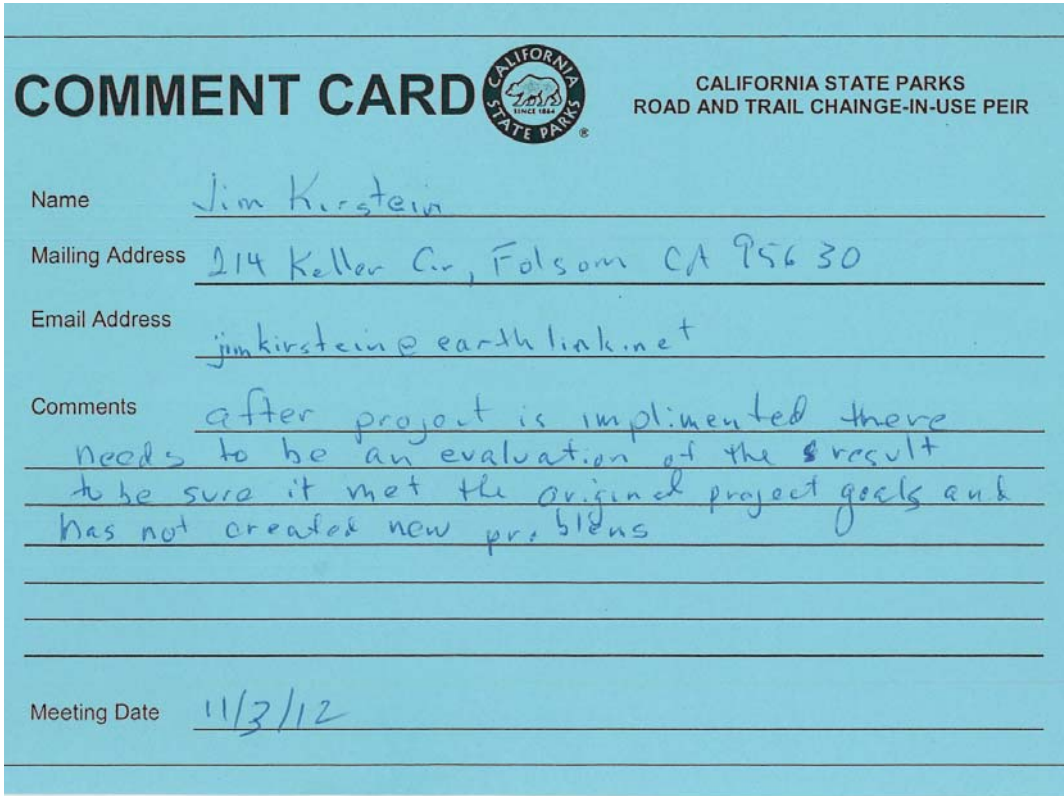 COMMENT CARD
CALIFORNIA
STATE PARKS
SINCE 1864
®
CALIFORNIA STATE PARKS
ROAD AND TRAIL CHAINGE-IN-USE PEIR
Name Jim Kirstein
Mailing Address 214 Keller Cir, Folsom CA 95630
Email Address jimkirstein@earthlink.net
Comments after project is implimented there
needs to be an evaluation of the result
to be sure it met the original project goals and
has not created new problems
Meeting Date 11/3/12